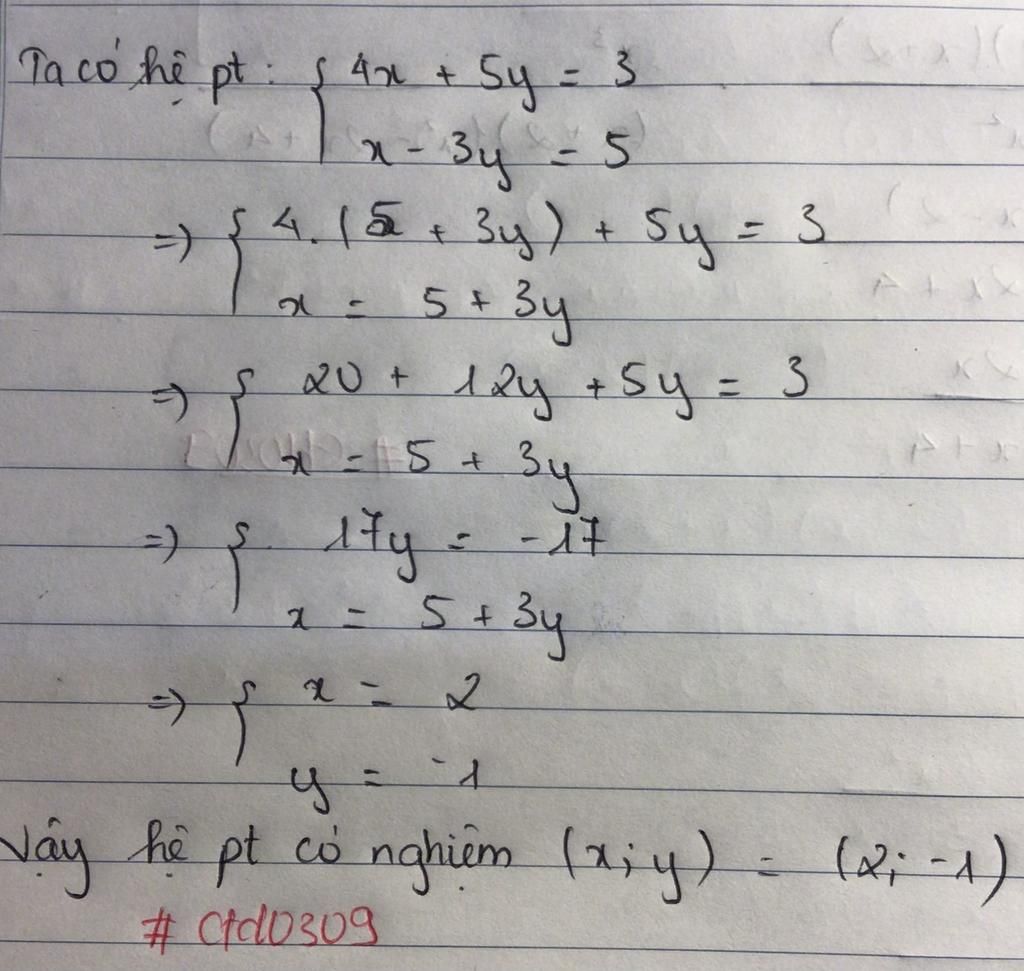 Ta có hệ pt: { 4x + 5y = 3
x - 3y = 5
=> { 4.(5 + 3y) + 5y = 3
x = 5 + 3y
=> { 20 + 12y + 5y = 3
x = 5 + 3y
=> { 17y = -17
x = 5 + 3y
=> { x = 2
y = -1
Vậy hệ pt có nghiệm (x; y) = (2; -1)